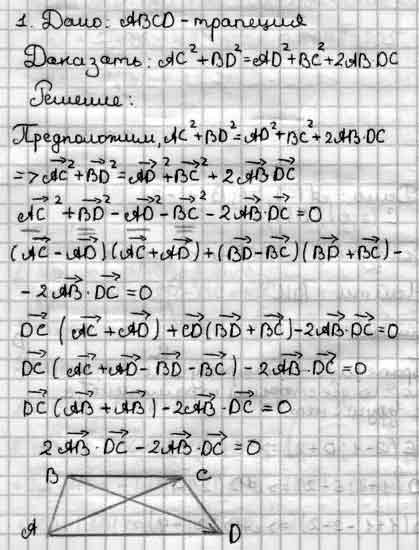 1. Дано: ABCD - трапеция
Доказать: AC² + BD² = AD² + BC² + 2AB·DC
Решение:
Предположим, AC² + BD² = AD² + BC² + 2AB·DC
=> \vec{AC}² + \vec{BD}² = \vec{AD}² + \vec{BC}² + 2\vec{AB}·\vec{DC}
\vec{AC}² + \vec{BD}² - \vec{AD}² - \vec{BC}² - 2\vec{AB}·\vec{DC} = 0
(\vec{AC} - \vec{AD})(\vec{AC} + \vec{AD}) + (\vec{BD} - \vec{BC})(\vec{BD} + \vec{BC}) -
- 2\vec{AB}·\vec{DC} = 0
\vec{DC}(\vec{AC} + \vec{AD}) + \vec{CD}(\vec{BD} + \vec{BC}) - 2\vec{AB}·\vec{DC} = 0
\vec{DC}(\vec{AC} + \vec{AD} - \vec{BD} - \vec{BC}) - 2\vec{AB}·\vec{DC} = 0
\vec{DC}(\vec{AB} + \vec{AB}) - 2\vec{AB}·\vec{DC} = 0
2\vec{AB}·\vec{DC} - 2\vec{AB}·\vec{DC} = 0
B C
A D